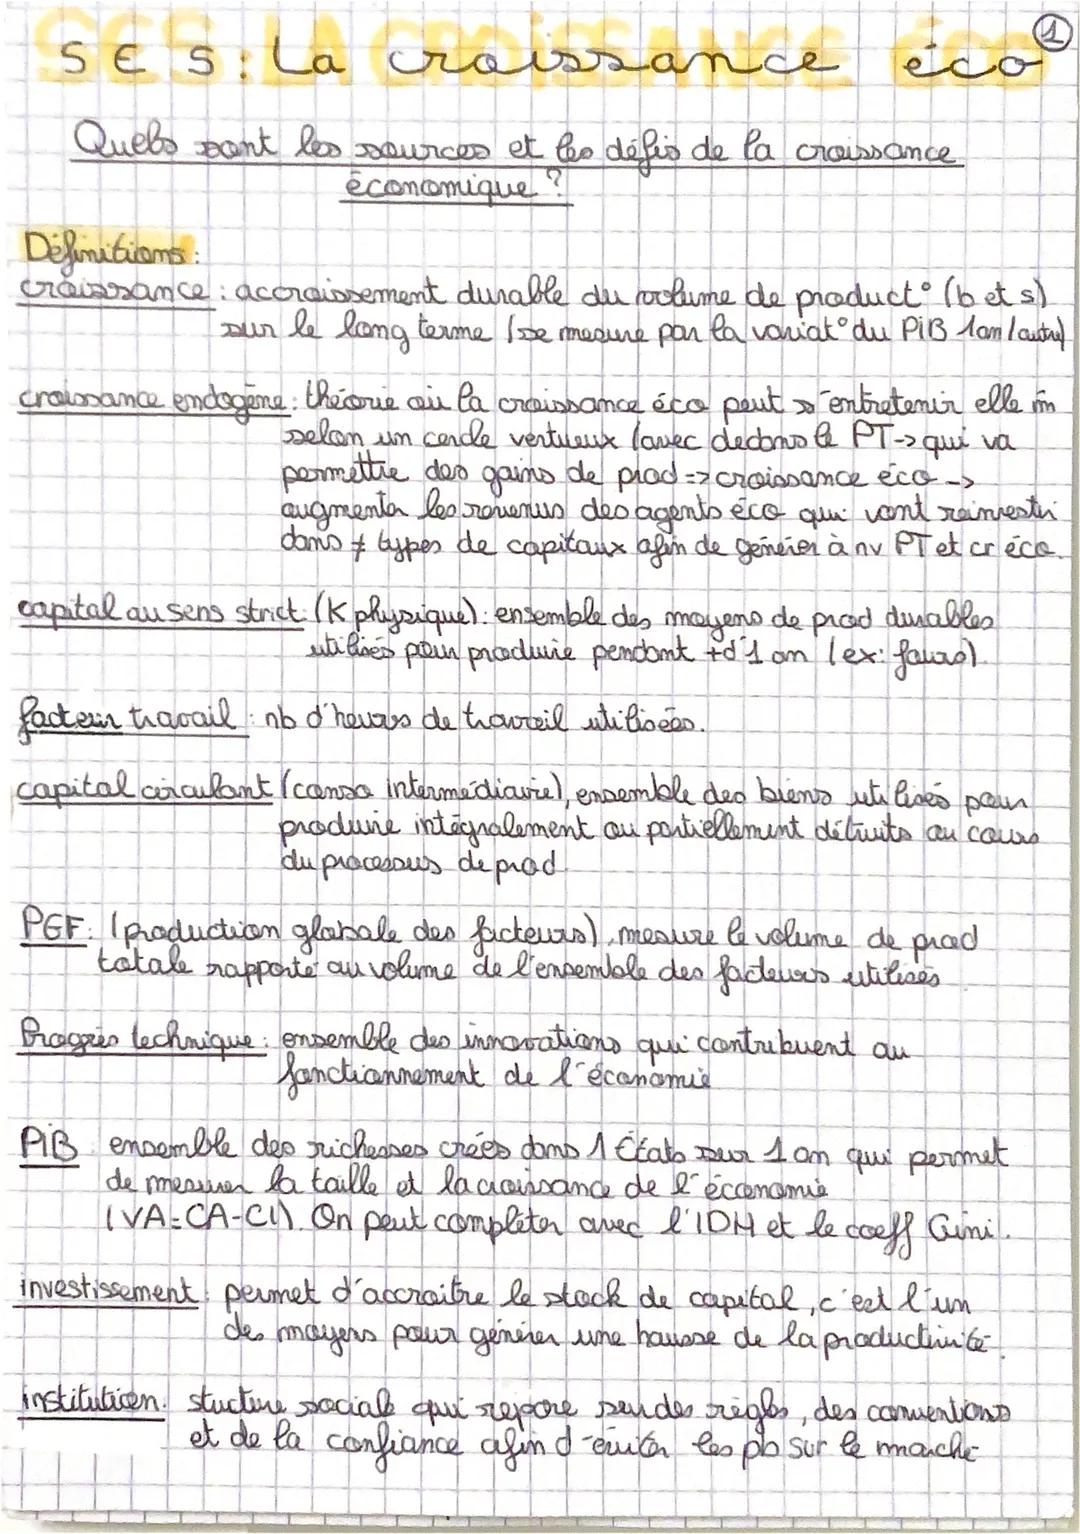 SES : La croissance éco
1
Quels sont les sources et les défis de la croissance
économique ?
Définitions :
croissance : accroissement durable du volume de product° (b et s)
sur le long terme (se mesure par la variat° du PiB 1an/autre)
croissance endogène : théorie où la croissance éco peut s'entretenir elle m̂
selon un cercle vertueux (avec dedans le PT -> qui va
permettre des gains de prod => croissance éco ->
augmenter les revenus des agents éco qui vont réinvestir
dans ≠ types de capitaux afin de générer à nv PT et cr éco.
capital au sens strict : (K physique) : ensemble des moyens de prod durables
utilisés pour produire pendant + d'1 an (ex: fours).
facteur travail : nb d'heures de travail utilisées.
capital circulant (conso intermédiaire), ensemble des biens utilisés pour
produire intégralement ou partiellement détruits au cours
du processus de prod.
PGF : (production globale des facteurs), mesure le volume de prod
totale rapporté au volume de l'ensemble des facteurs utilisés
Progrès technique : ensemble des innovations qui contribuent au
fonctionnement de l'économie
PiB : ensemble des richesses crées dans 1 États sur 1 an qui permet
de mesurer la taille et la croissance de l'économie
(VA=CA-CI). On peut compléter avec l'IDH et le coeff Gini.
investissement : permet d'accroitre le stock de capital, c'est l'un
des moyens pour générer une hausse de la productivité.
institution : stucture sociale qui repose sur des règles, des conventions
et de la confiance afin d'éviter les pb sur le marché